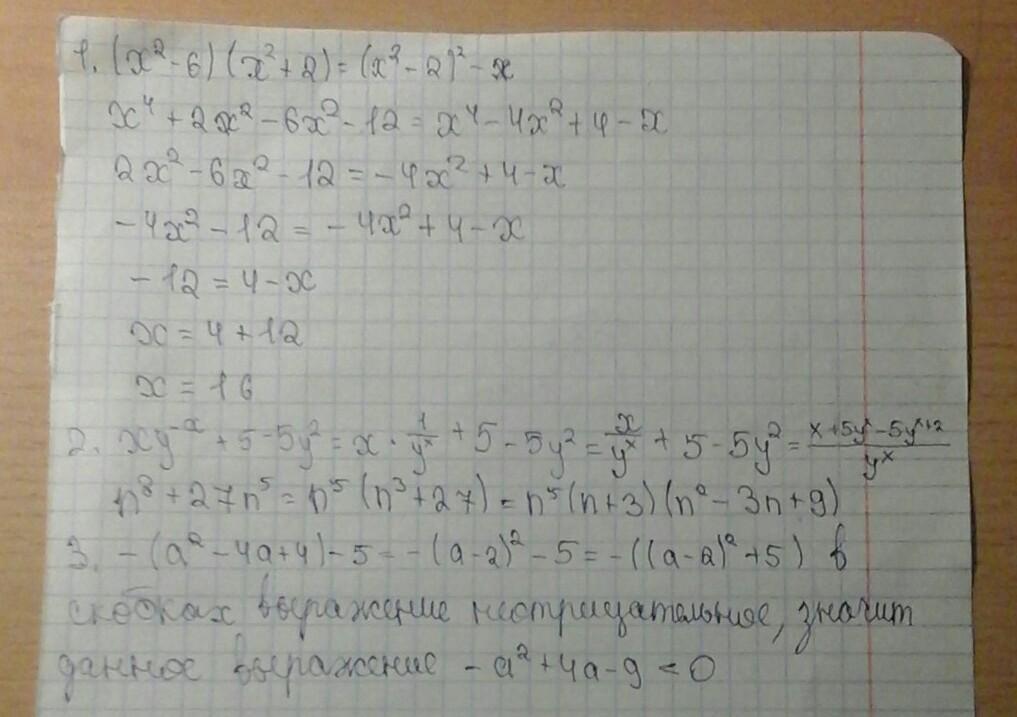 1. (x² - 6) (x² + 2) = (x² - 2)² - x
x⁴ + 2x² - 6x² - 12 = x⁴ - 4x² + 4 - x
2x² - 6x² - 12 = - 4x² + 4 - x
- 4x² - 12 = - 4x² + 4 - x
- 12 = 4 - x
x = 4 + 12
x = 16
2. xy⁻ˣ + 5 - 5y² = x · 1/yˣ + 5 - 5y² = x/yˣ + 5 - 5y² = (x + 5yˣ - 5yˣ⁺²)/yˣ
n⁸ + 27n⁵ = n⁵ (n³ + 27) = n⁵ (n + 3) (n² - 3n + 9)
3. - (a² - 4a + 4) - 5 = - (a - 2)² - 5 = - ((a - 2)² + 5) в
скобках выражение неотрицательное, значит
данное выражение - a² + 4a - 9 < 0